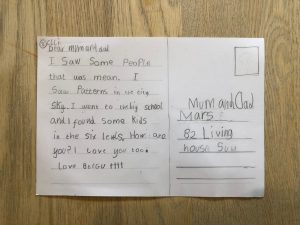 Dear Mum and Dad
I Saw Some People
that was mean. I
Saw Patterns in the city
sky. I went to the big school
and I found some kids
in the six levels, How are
you? I love you too.
Love
Mum and Dad
Mars
82 Living
house Sun